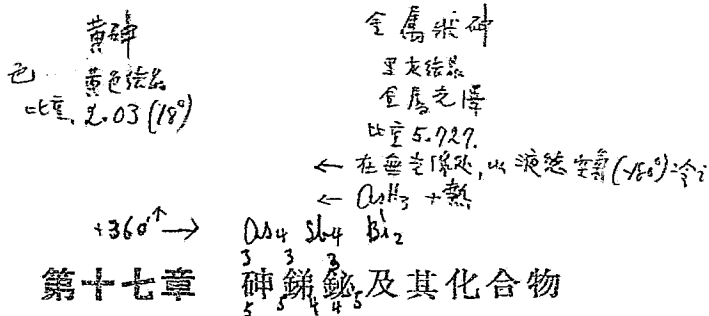 黄砷
色 黄色结晶
比重, 2.03 (18°)
金属狀砷
黑灰结晶
金属光澤
比重 5.727.
← 在無光線处, 以液態空氣(-180°)冷
← AsH₃ + 熱
+360°↑ → As4 Sb4 Bi2
3 3 3
第十七章 砷銻鉍及其化合物
5 5 4 4 5